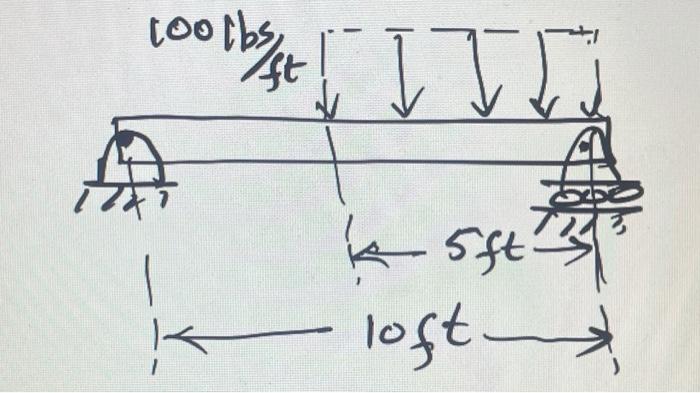 100 lbs/
ft
5ft
10ft